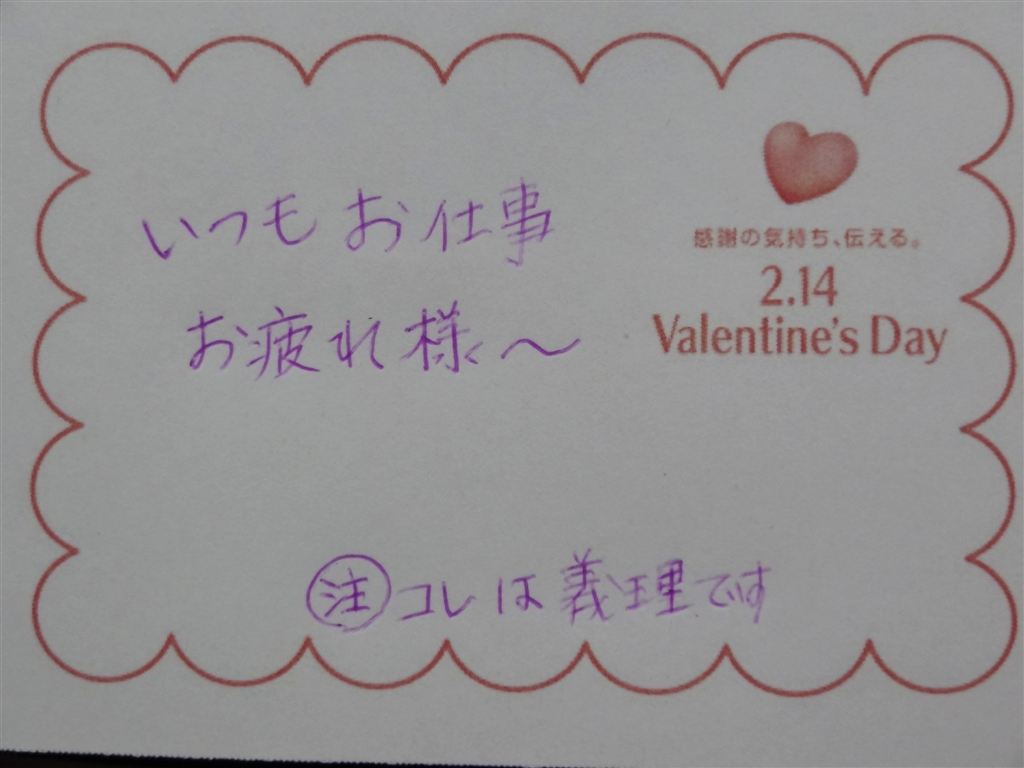 いつもお仕事
お疲れ様〜
感謝の気持ち、伝える。
2.14
Valentine's Day
㊟コレは義理です